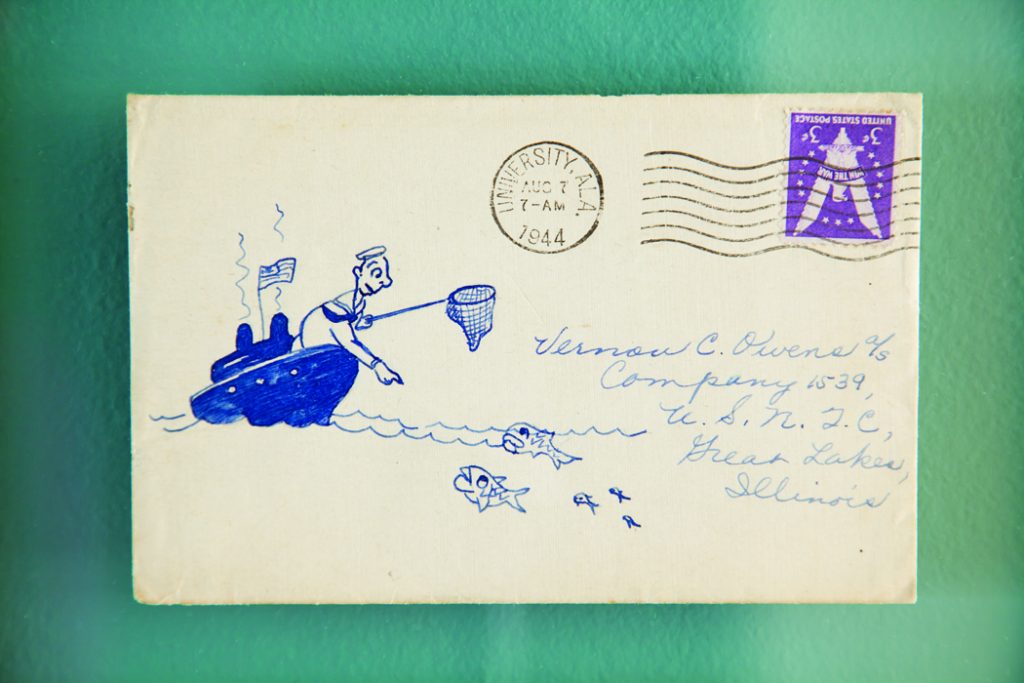 UNIVERSITY, ALA.
AUG 7
7-AM
1944
UNITED STATES POSTAGE
3¢ 3¢
WIN THE WAR
Vernon C. Owens a/s
Company 1539,
U. S. N. T. C,
Great Lakes,
Illinois